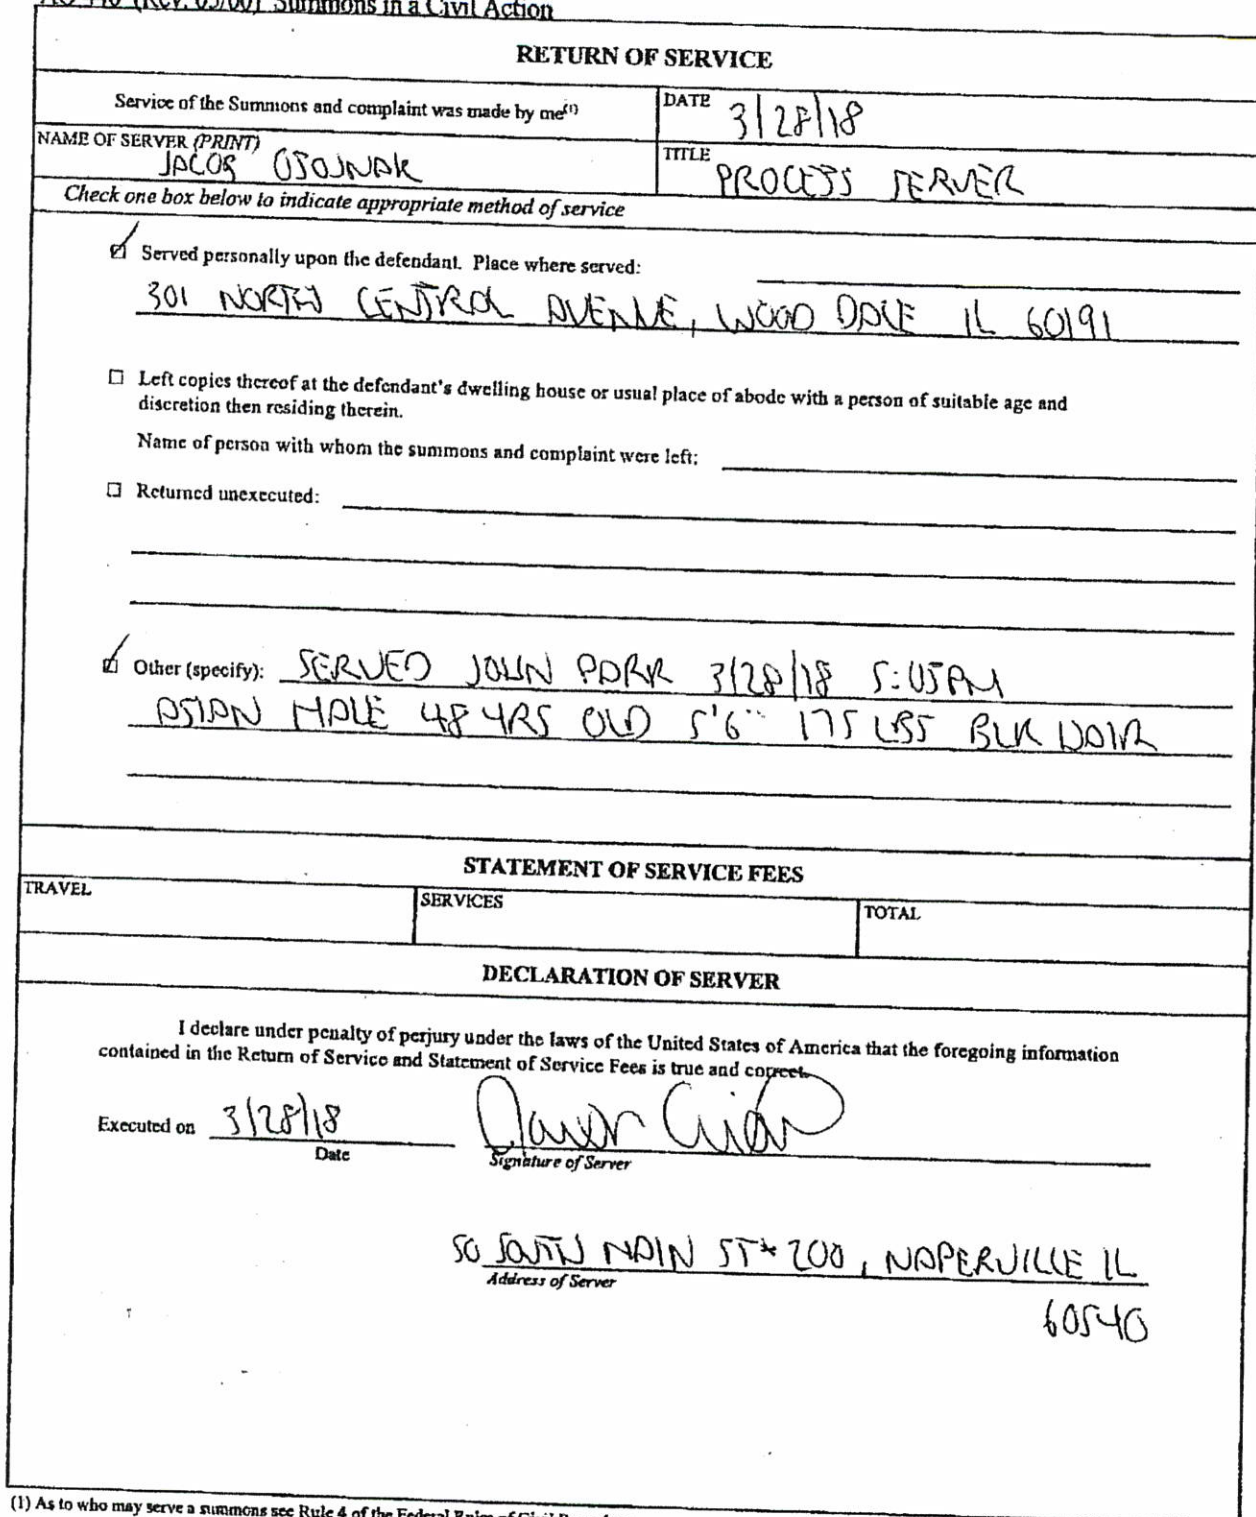 AO 440 (Rev. 05/00) Summons in a Civil Action
RETURN OF SERVICE
Service of the Summons and complaint was made by me(1)
DATE 3/28/18
NAME OF SERVER (PRINT)
JACOB
TITLE
PROCESS SERVER
Check one box below to indicate appropriate method of service
☑ Served personally upon the defendant. Place where served:
301 NORTH CENTRAL AVENUE, WOOD DALE IL 60191
☐ Left copies thereof at the defendant's dwelling house or usual place of abode with a person of suitable age and
discretion then residing therein.
Name of person with whom the summons and complaint were left:
☐ Returned unexecuted:
☑ Other (specify): SERVED JOHN PARK 3/28/18 5:05PM
ASIAN MALE 48 YRS OLD 5'6" 175 LBS BLK HAIR
STATEMENT OF SERVICE FEES
TRAVEL
SERVICES
TOTAL
DECLARATION OF SERVER
I declare under penalty of perjury under the laws of the United States of America that the foregoing information
contained in the Return of Service and Statement of Service Fees is true and correct.
Executed on 3/28/18
Date
Signature of Server
50 SOUTH MAIN ST #200, NAPERVILLE IL
Address of Server
60540
(1) As to who may serve a summons see Rule 4 of the Federal Rules of Civil